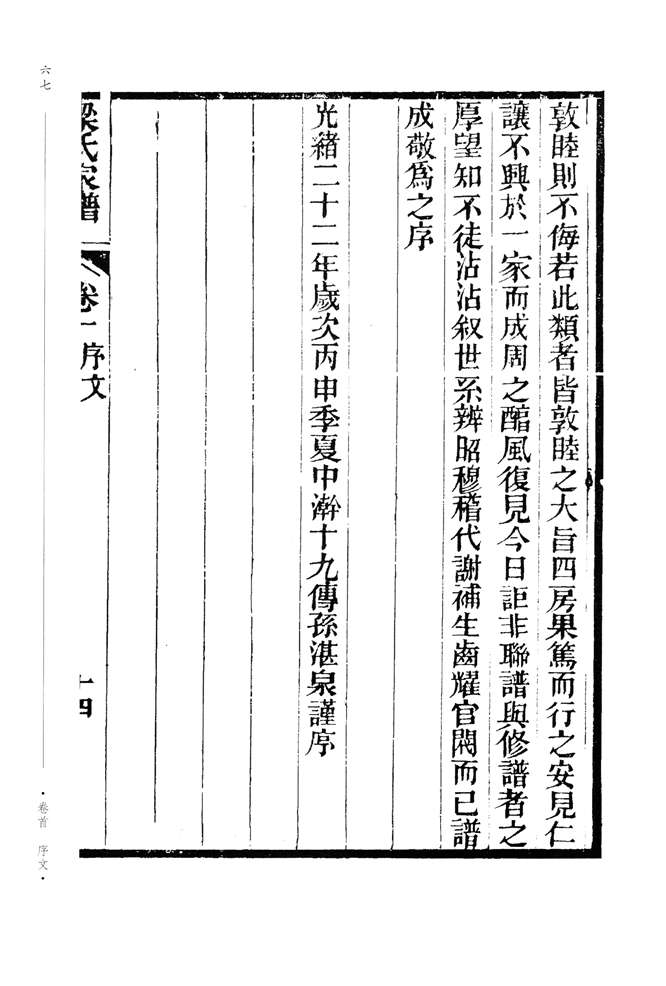 敦睦則不侮若此類者皆敦睦之大旨四房果篤而行之安見仁
讓不興於一家而成周之醕風復見今日詎非聯譜與修譜者之
厚望知不徒沾沾叙世系辨昭穆稽代謝補生齒耀官閥而已譜
成敬爲之序
光緒二十二年歲次丙申季夏中澣十九傳孫湛泉謹序
梁氏家譜
卷一序文
十四
六七
·卷首 序文·